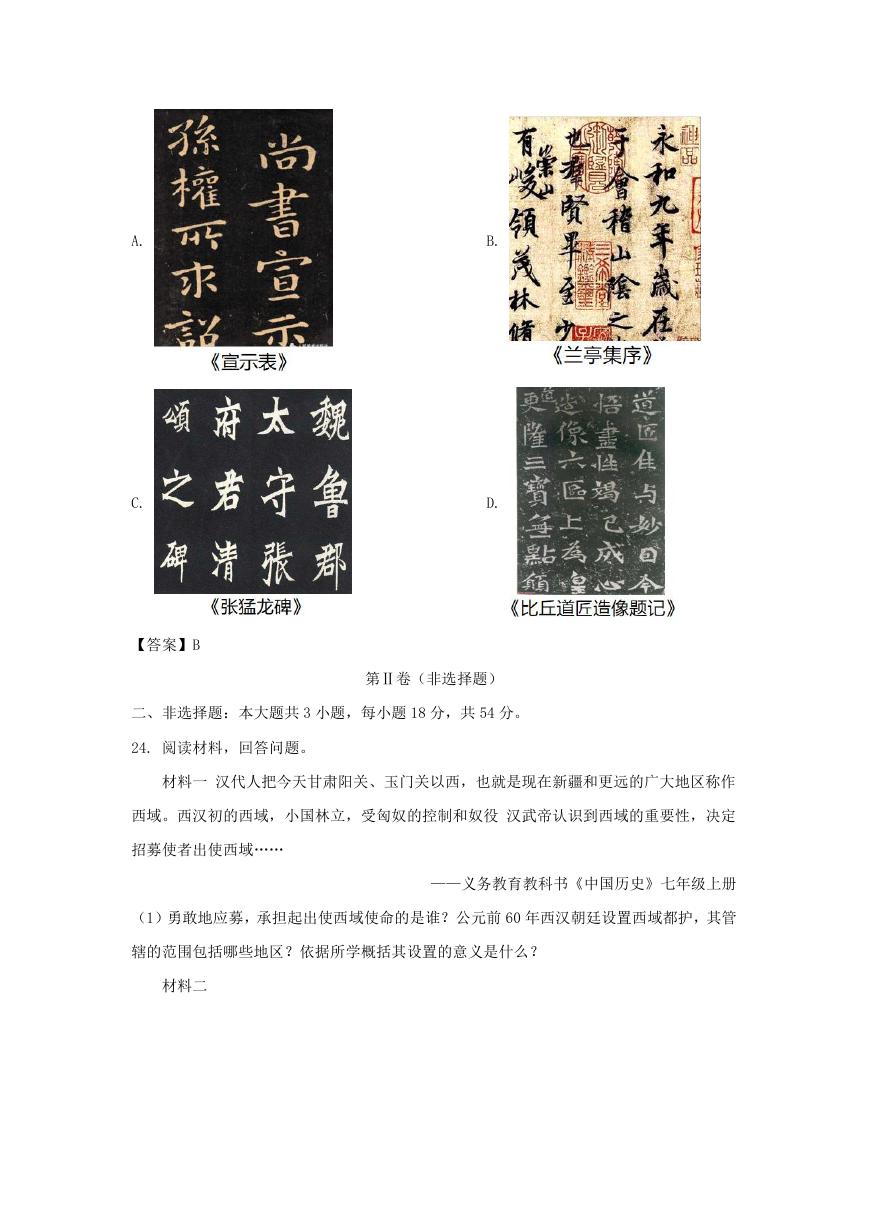 A.
孫權所求詔
尚書宣示
《宣示表》
B.
永和九年歲在
于會稽山陰之
也羣賢畢至少
有崇山峻領茂林脩
《兰亭集序》
C.
魏魯郡
太守張
府君清
頌之碑
《张猛龙碑》
D.
道匠住与妙因今
悟盡性竭已成心
造像六區上為皇
更隆三寶無點願
《比丘道匠造像题记》
【答案】B
第Ⅱ卷（非选择题）
二、非选择题：本大题共 3 小题，每小题 18 分，共 54 分。
24. 阅读材料，回答问题。
材料一 汉代人把今天甘肃阳关、玉门关以西，也就是现在新疆和更远的广大地区称作
西域。西汉初的西域，小国林立，受匈奴的控制和奴役 汉武帝认识到西域的重要性，决定
招募使者出使西域……
——义务教育教科书《中国历史》七年级上册
（1）勇敢地应募，承担起出使西域使命的是谁？公元前 60 年西汉朝廷设置西域都护，其管
辖的范围包括哪些地区？依据所学概括其设置的意义是什么？
材料二